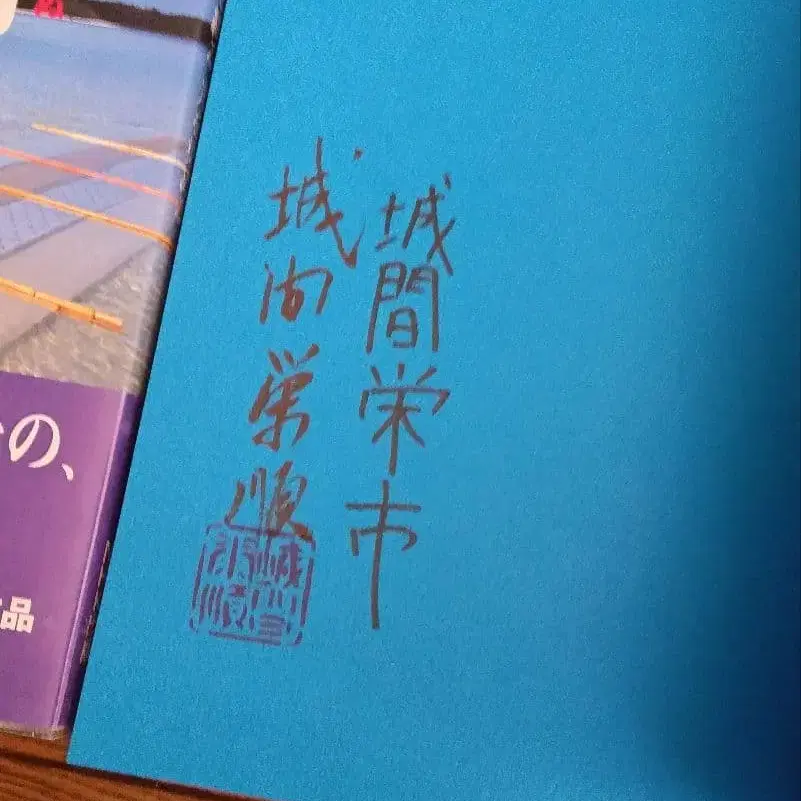 城間栄市
城間栄順
の、
品